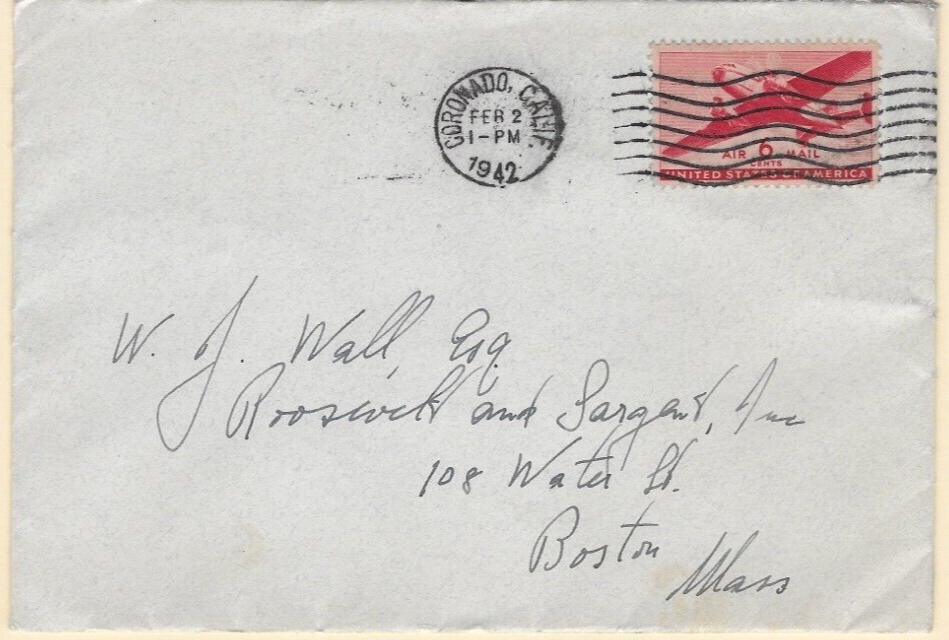 CORONADO, CALIF.
FEB 2
1-PM
1942
AIR 6 MAIL
CENTS
UNITED STATES OF AMERICA
W. J. Wall, Esq
Roosevelt and Sargent, Inc
108 Water St.
Boston
Mass